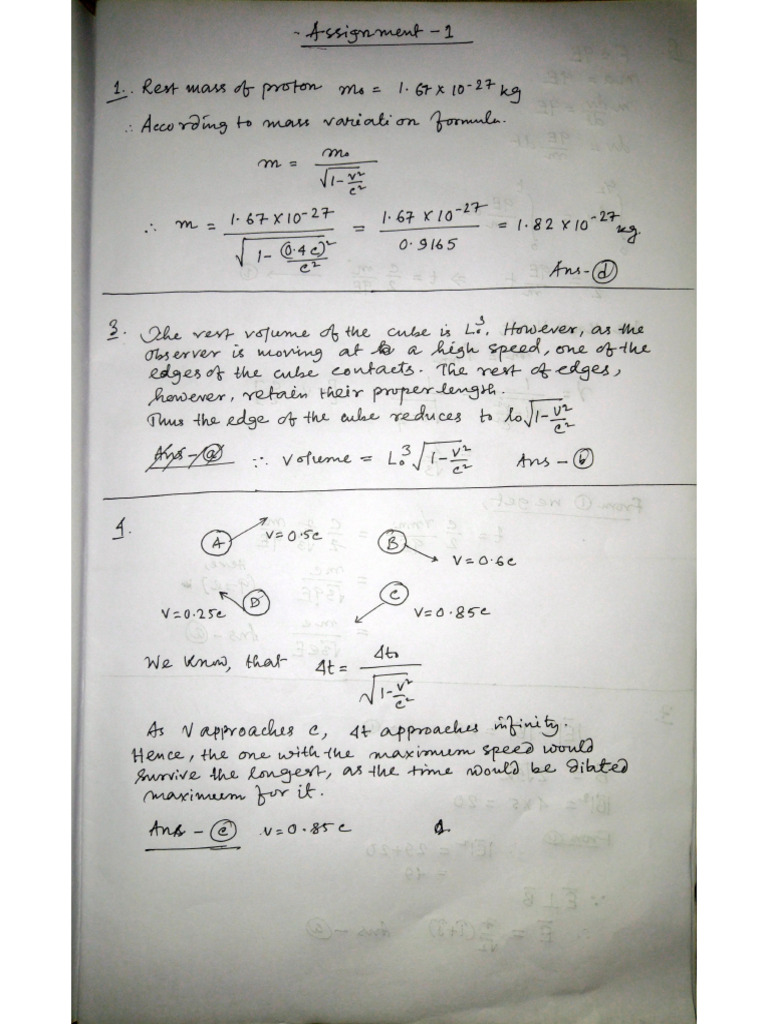 - Assignment - 1
1. Rest mass of proton m₀ = 1.67 × 10⁻²⁷ kg
∴ According to mass variation formula.
m = m₀ / √(1 - v²/c²)
∴ m = 1.67 × 10⁻²⁷ / √(1 - (0.4c)²/c²) = 1.67 × 10⁻²⁷ / 0.9165 = 1.82 × 10⁻²⁷ kg.
Ans - (d)
3. The rest volume of the cube is L₀³. However, as the
observer is moving at a high speed, one of the
edges of the cube contacts. The rest of edges,
however, retain their proper length.
Thus the edge of the cube reduces to lo√(1 - v²/c²)
Ans - (a) ∵ volume = L₀³ √(1 - v²/c²) Ans - (b)
4.
A v = 0.5c B v = 0.6c
D v = 0.25c C v = 0.85c
We know, that Δt = Δt₀ / √(1 - v²/c²)
As v approaches c, Δt approaches infinity.
Hence, the one with the maximum speed would
survive the longest, as the time would be dilated
maximum for it.
Ans - (c) v = 0.85c